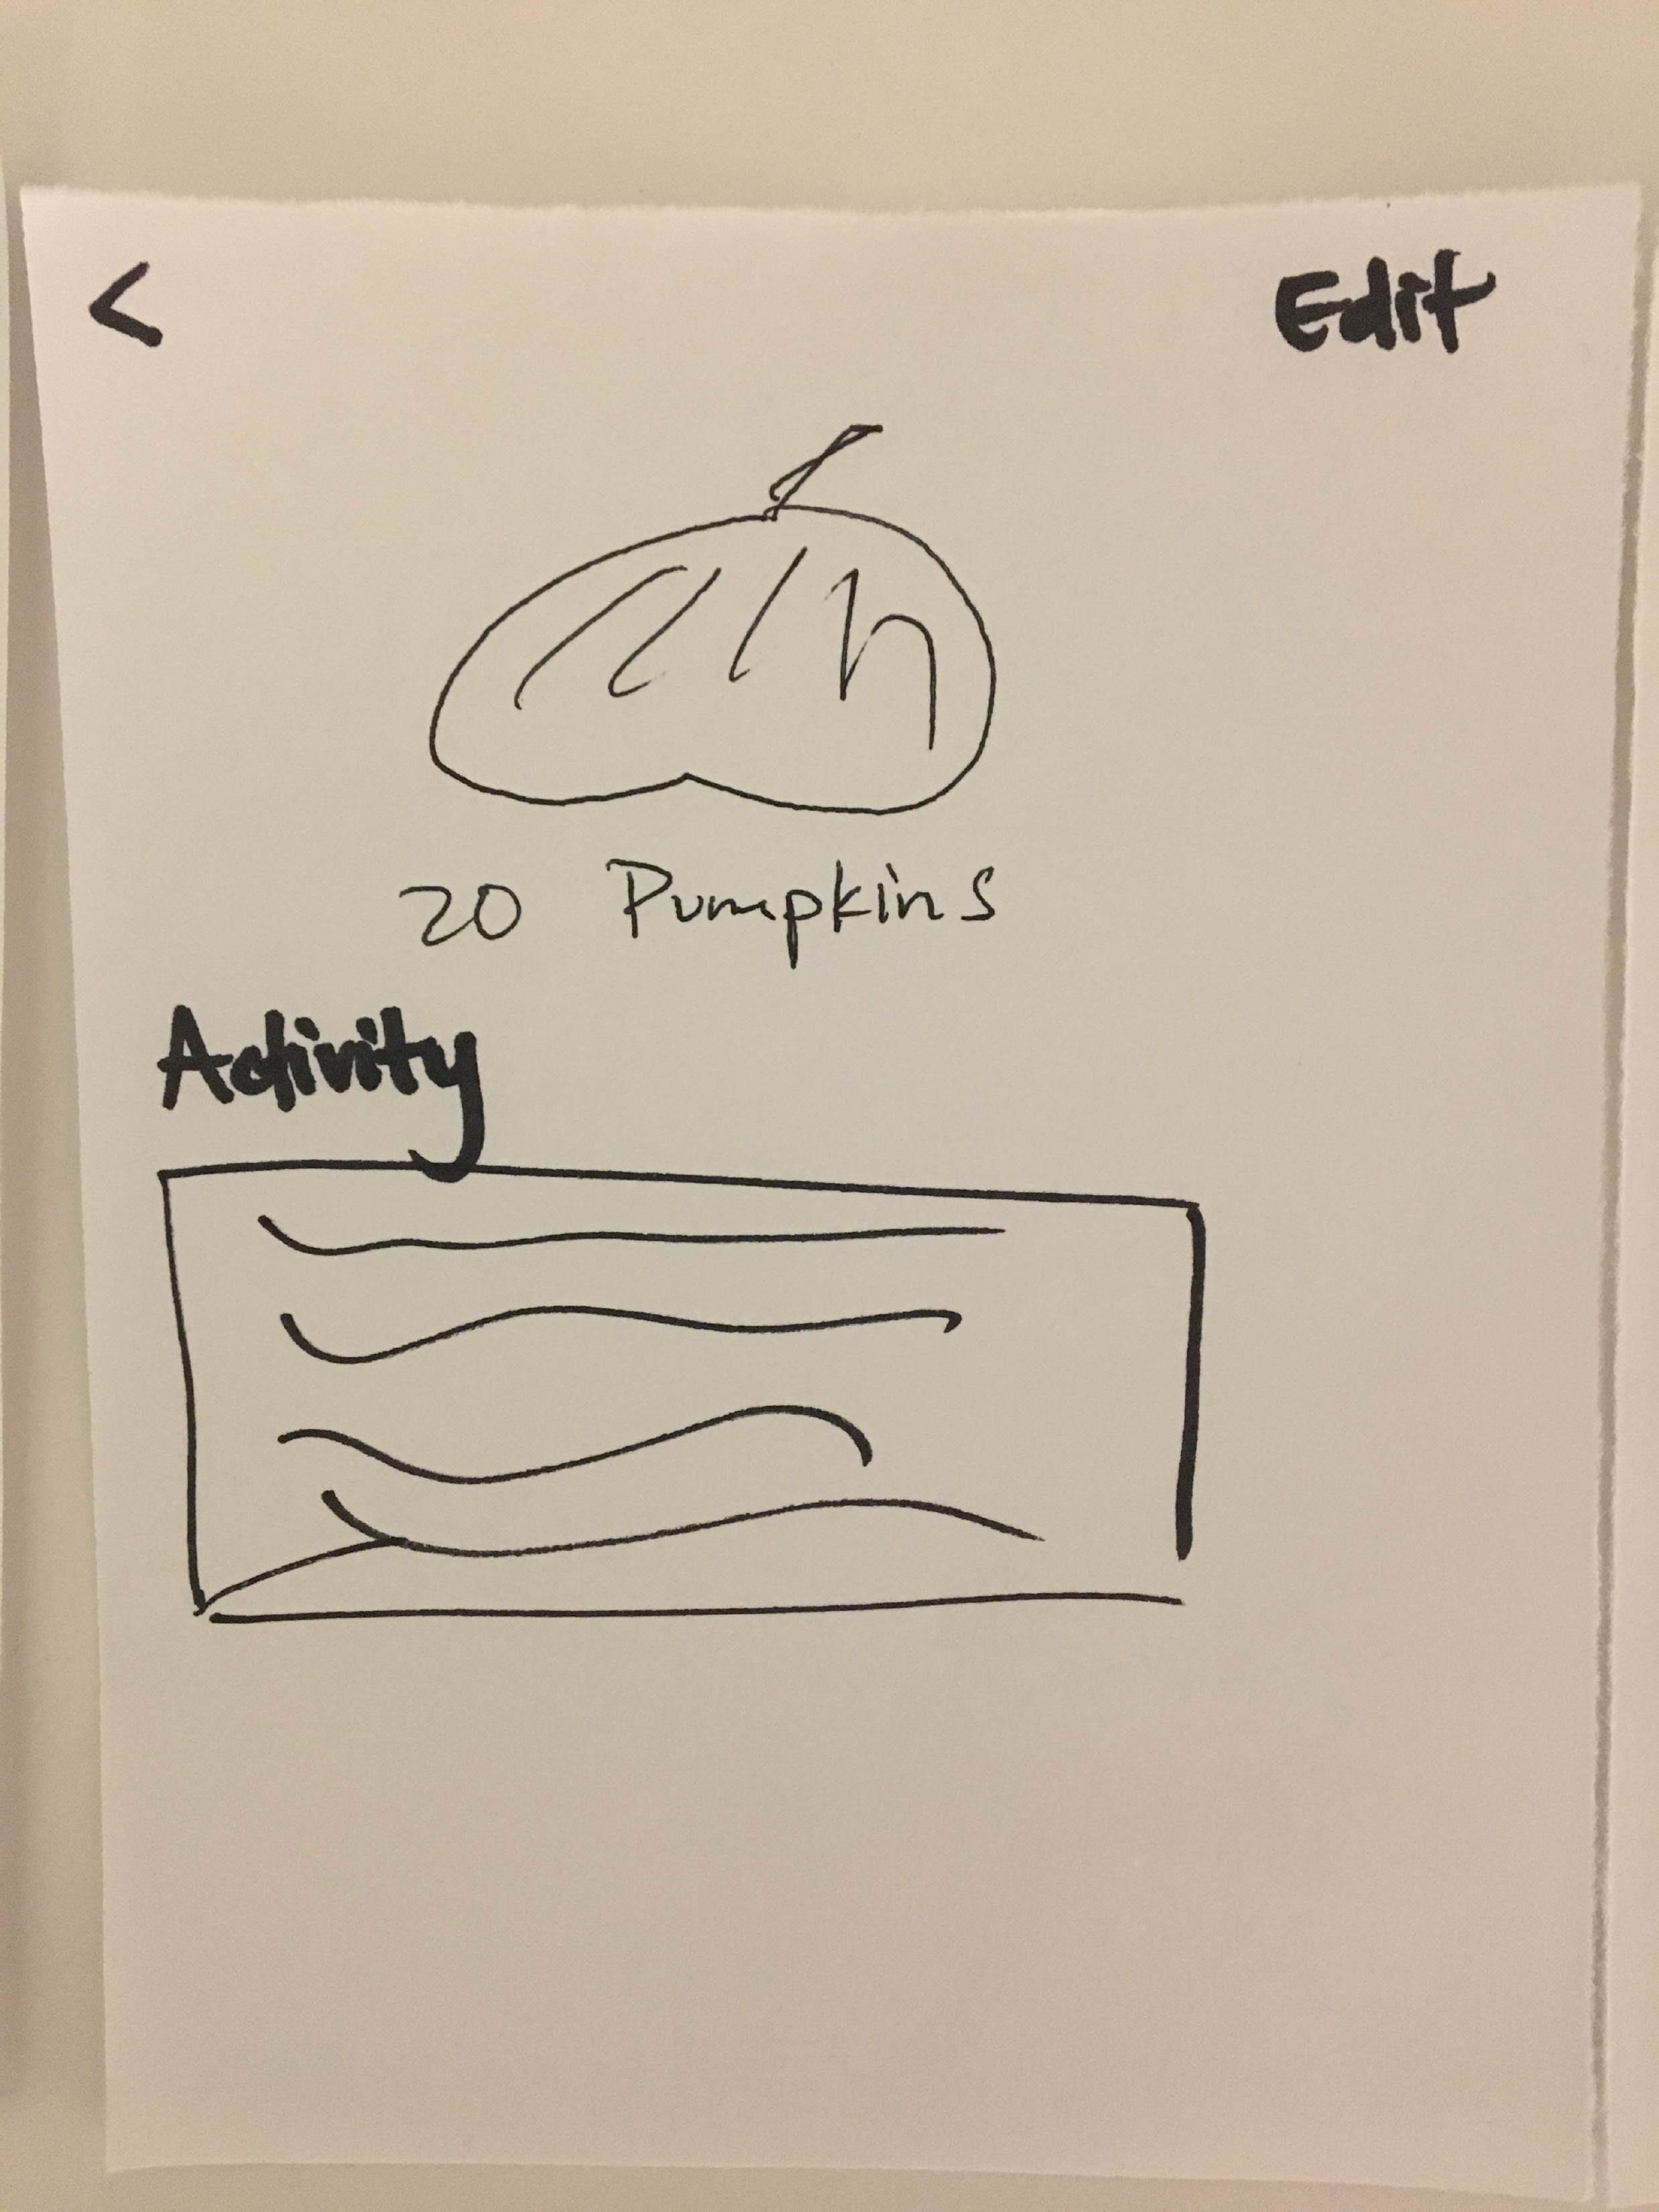 < Edit
20 Pumpkins
Activity